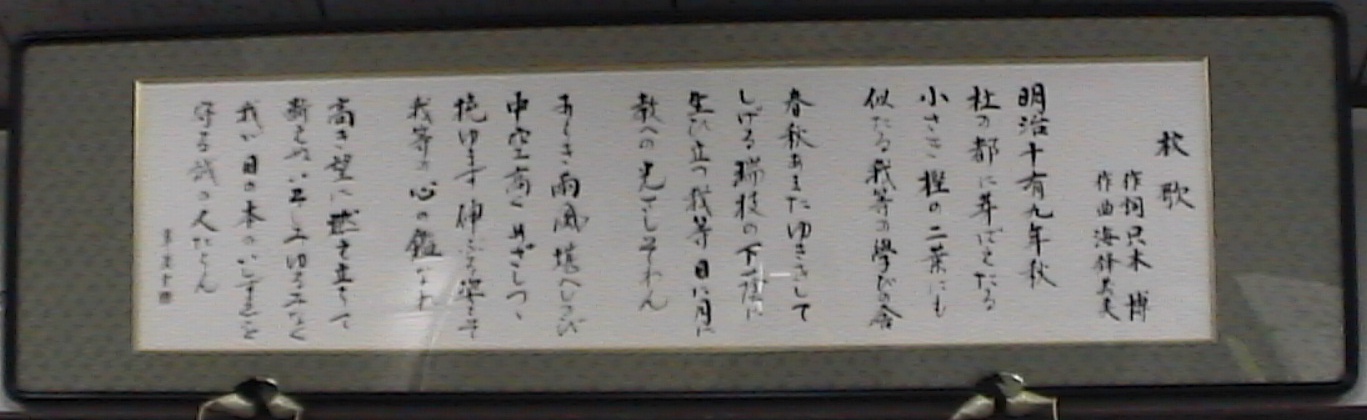 校歌
作詞 只木 博
作曲 海鋒義美
明治十有九年秋
杜の都に芽ばえたる
小さき樫の二葉にも
似たる我等の學びの舎
春秋あまたゆききして
しげる瑞枝の下蔭に
生ひ立つ我等日に月に
教への光さしそわん
あらき雨風堪へしのび
中空高くめざしつゝ
撓ゆまず伸ぶる姿こそ
我等の心の鑑なれ
高き望に
我が日の本のいしずゑを
守る誠の人たらん